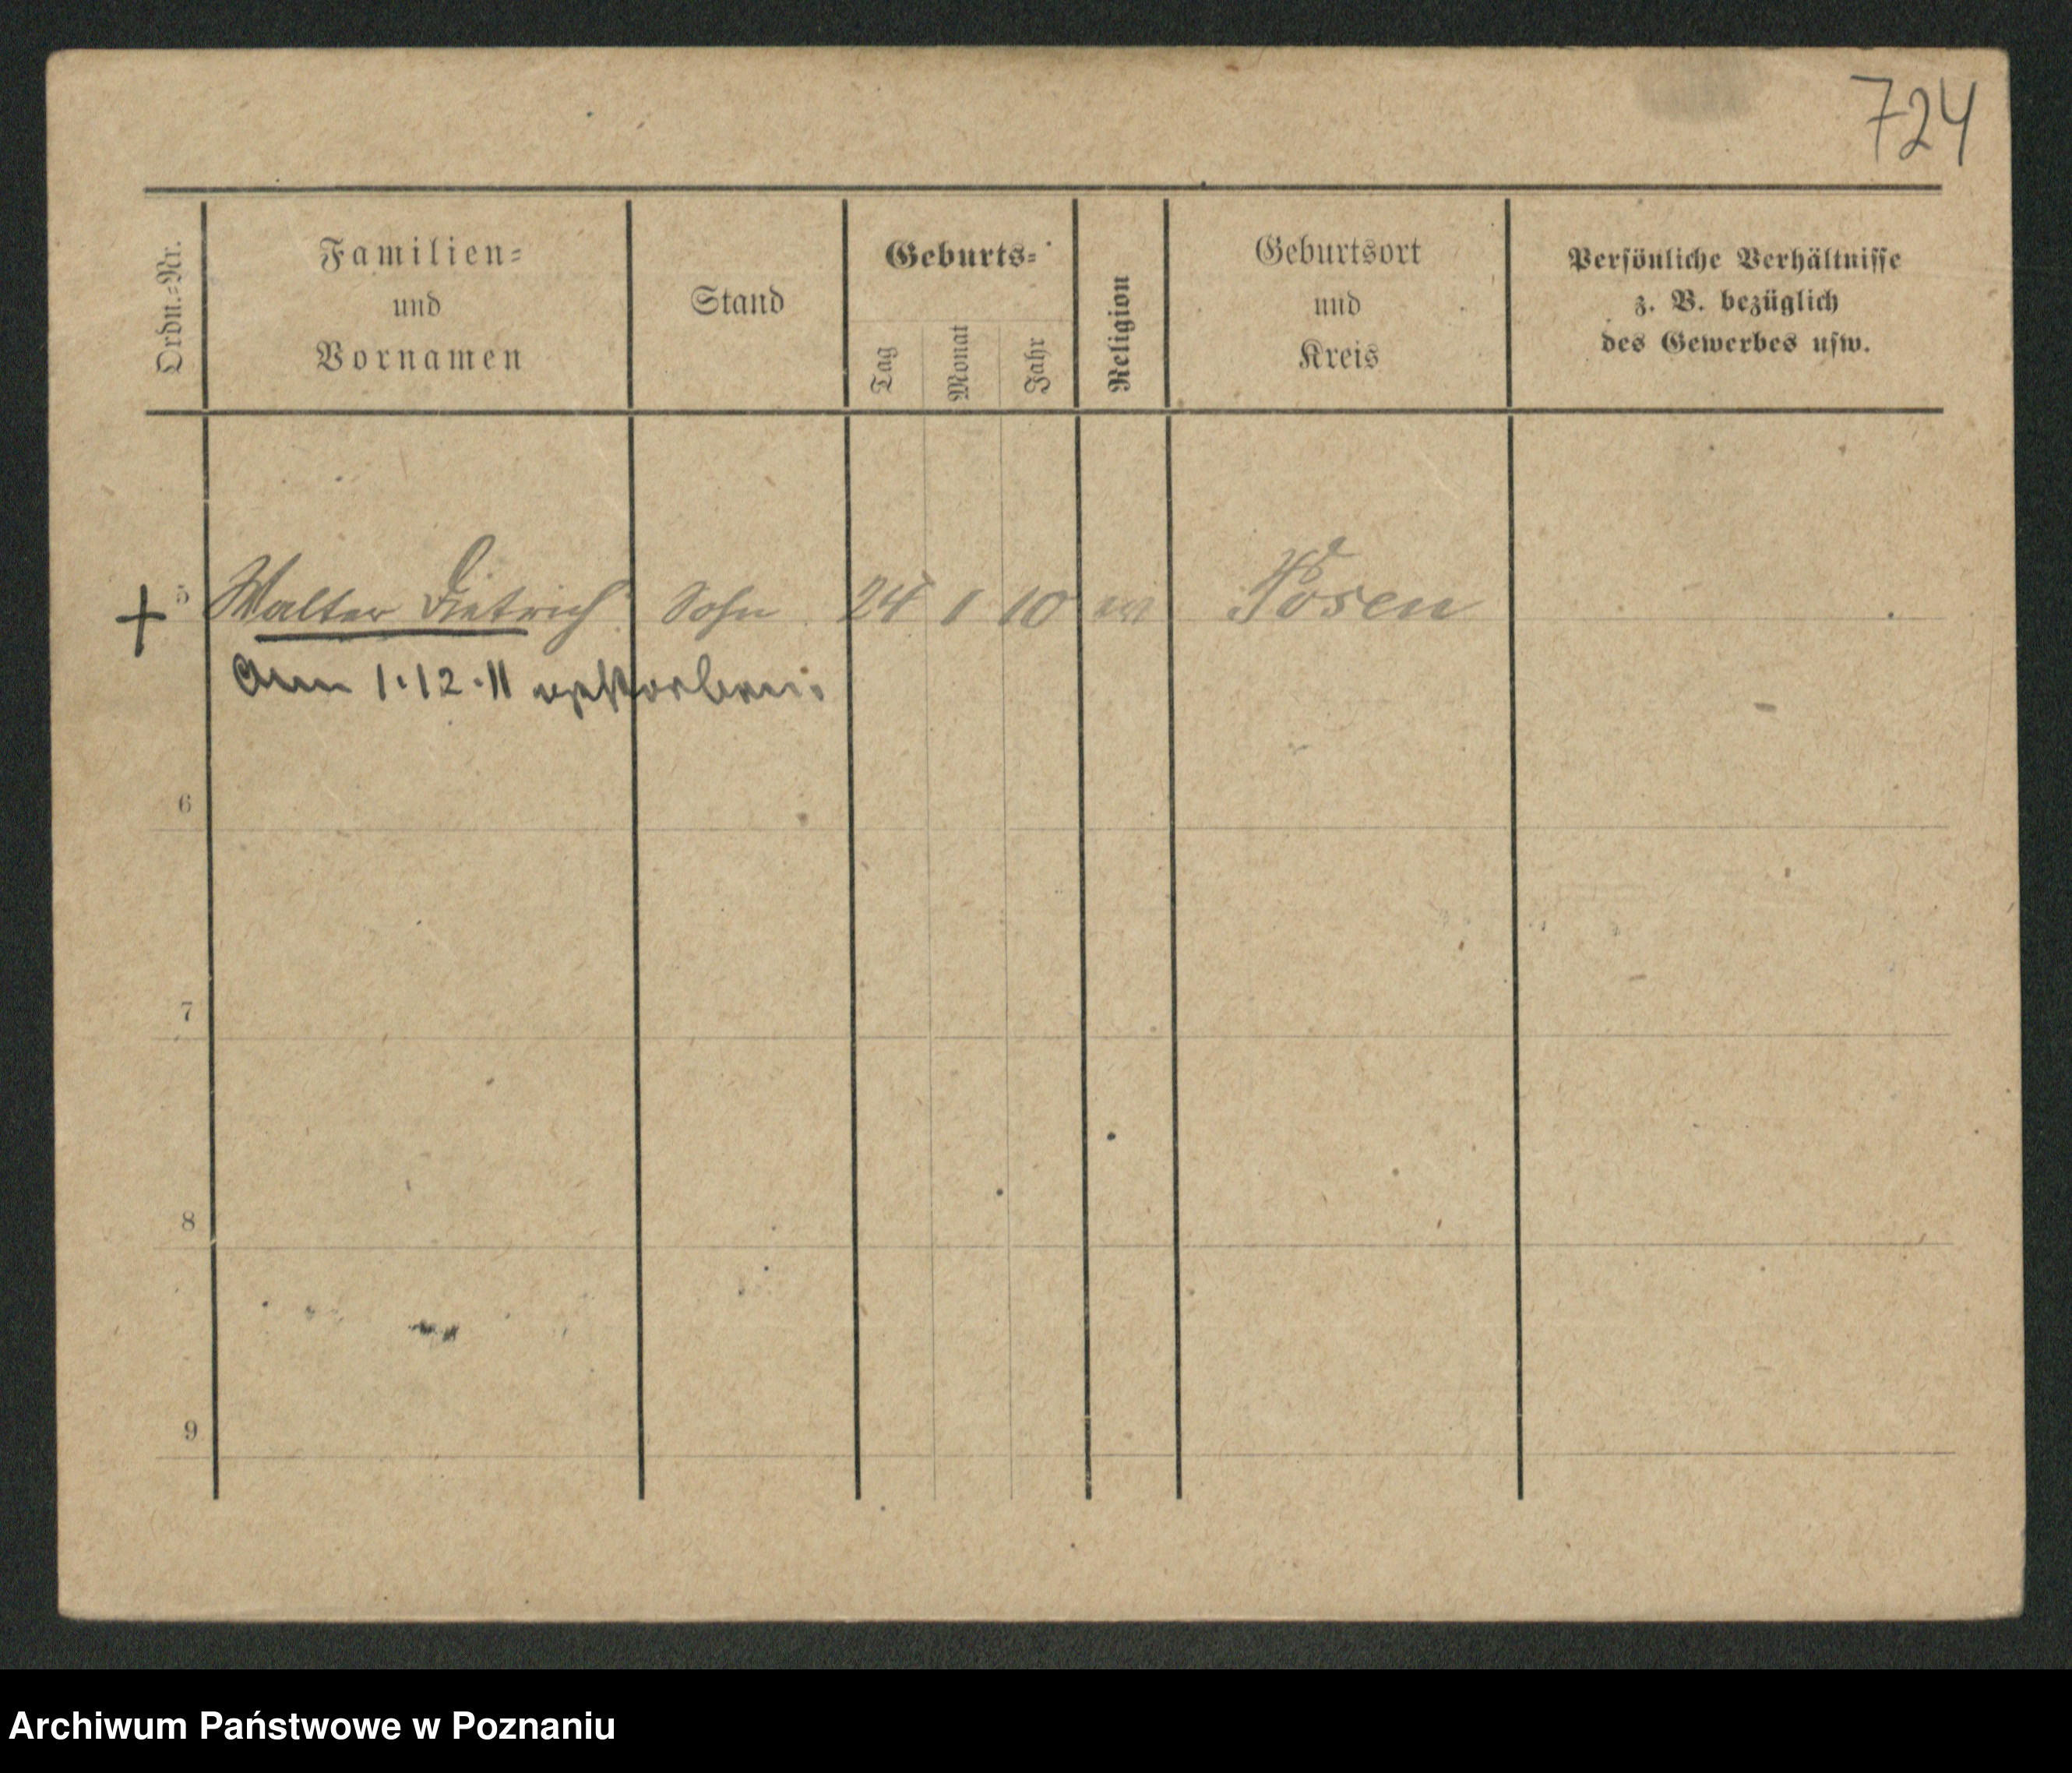 724
Ordn.-Nr.
Familien-
und
Vornamen
Stand
Geburts-
Tag
Monat
Jahr
Religion
Geburtsort
und
Kreis
Persönliche Verhältnisse
z. B. bezüglich
des Gewerbes usw.
+ 5 Walter Dietrich Sohn 24 1 10 ev Posen
Am 1.12.11 verstorben.
6
7
8
9
Archiwum Państwowe w Poznaniu